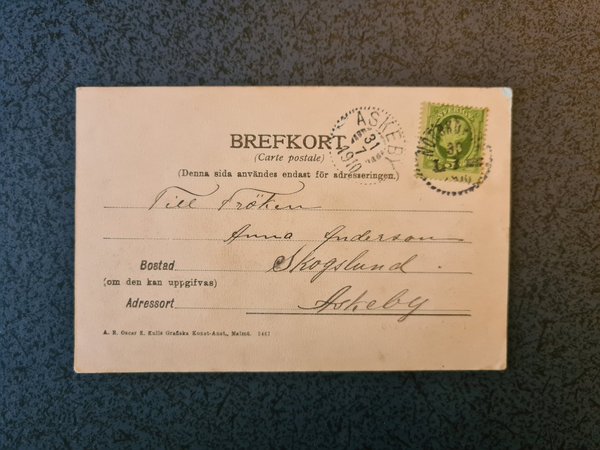 BREFKORT
(Carte postale)
(Denna sida användes endast för adresseringen.)
ASKEBY
31
7
1910
30
Till Fröken
Anna Anderson
Bostad Skogslund.
(om den kan uppgifvas)
Adressort Askeby
A. B. Oscar E. Kulls Grafiska Konst-Anst., Malmö.